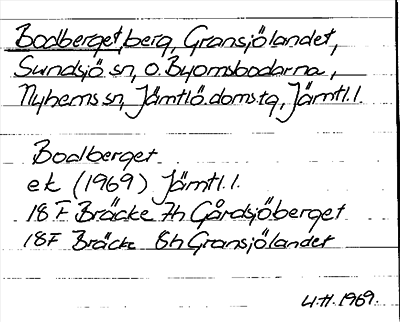 Bodberget, berg, Gransjölandet,
Sundsjö sn, o. Byomsbodarna,
Nyhems sn, Jämtlö. doms.tq, Jämtl. l.
Bodberget
ek (1969) Jämtl. l.
18 F Bräcke 7h Gårdsjöberget
18F Bräcke 8h Gransjölandet
U.H. 1969.